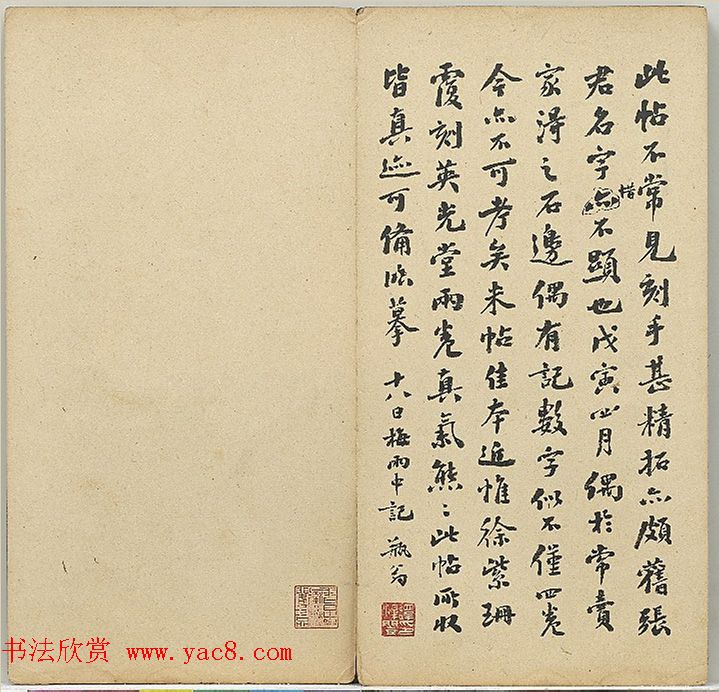 此帖不常見刻手甚精拓亦頗舊張
君名字亦不顯也戊寅四月偶於常賣
惜
家得之石邊偶有記數字似不僅四卷
今亦不可考矣米帖佳本近惟徐紫珊
覆刻英光堂兩卷真氣熊〻此帖所收
皆真迹可備臨摹
十八日梅雨中記 瓶翁
书法欣赏 www.yac8.com